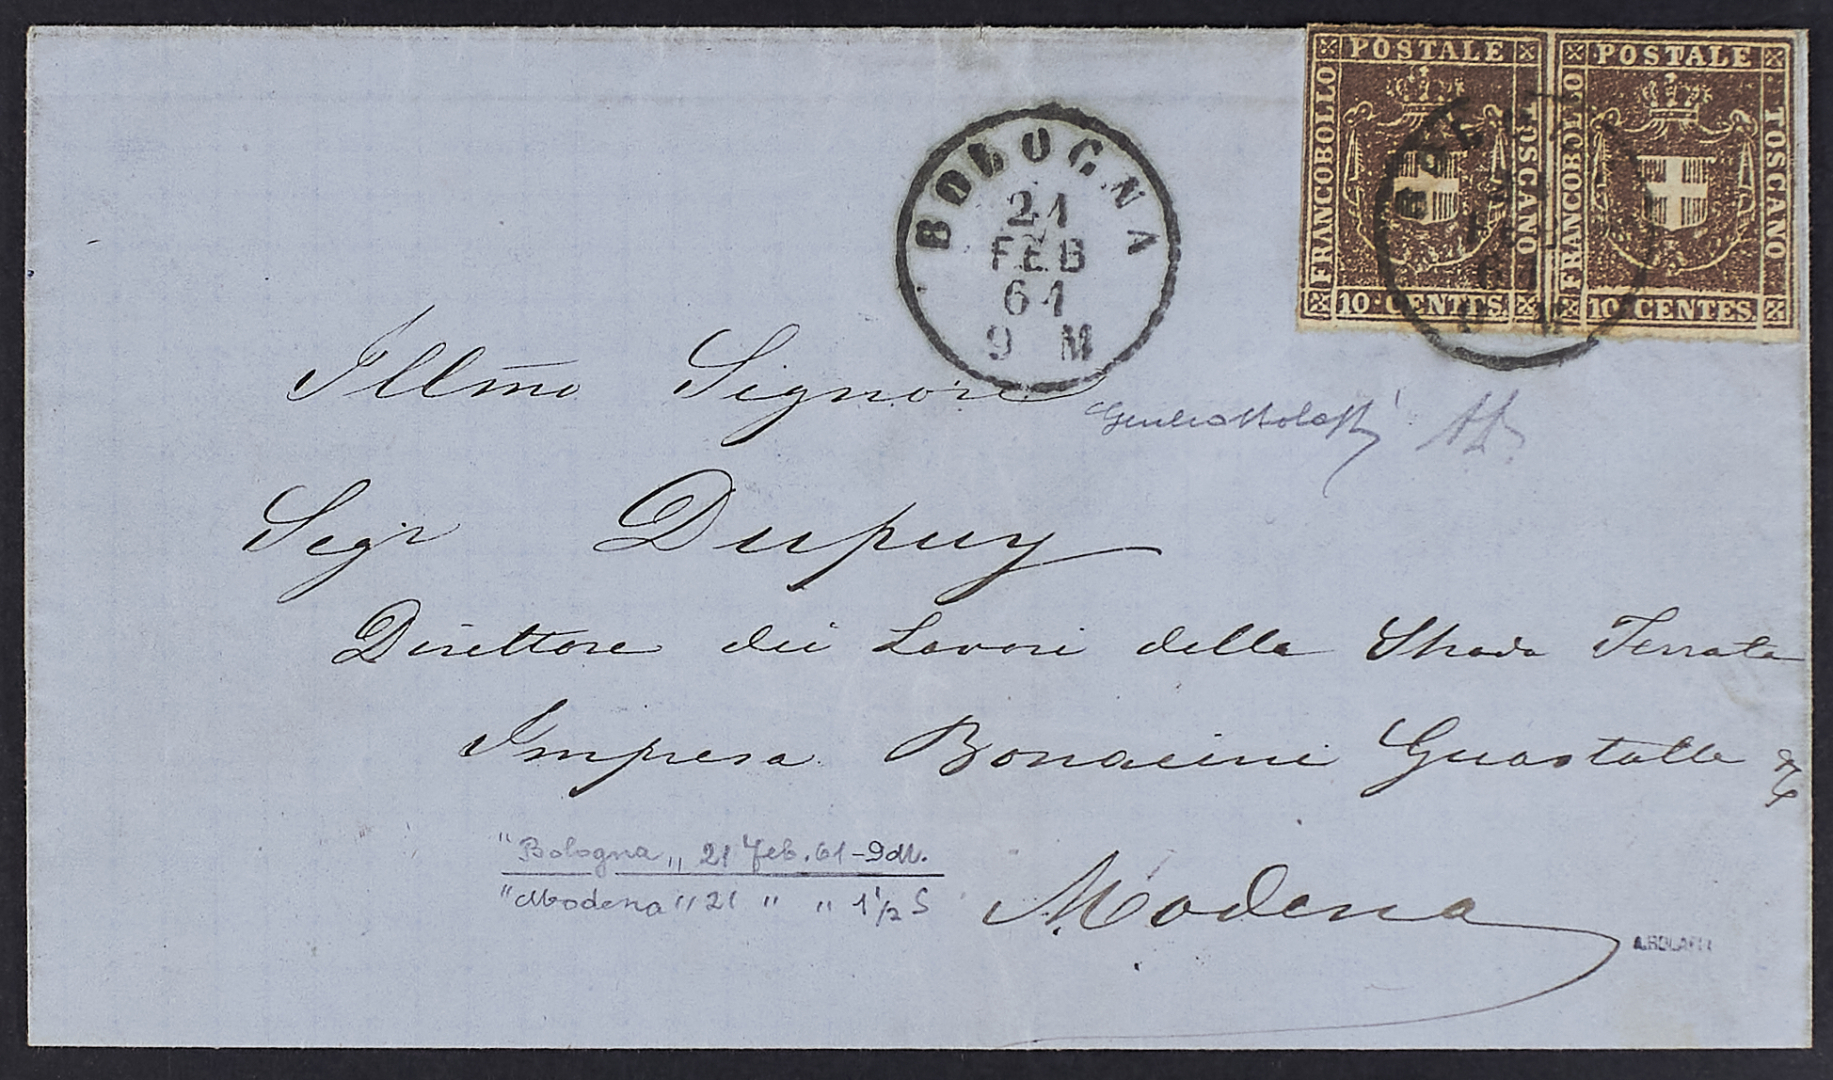 FRANCOBOLLO POSTALE TOSCANO 10 CENTES.
FRANCOBOLLO POSTALE TOSCANO 10 CENTES.
BOLOGNA
21
FEB
61
9 M
Illmo Signore
Sigr Dupuy
Direttore dei Lavori della Strada Ferrata
Impresa Bonacini Guastalla
"Bologna„ 21 Feb. 61 - 9M.
"Modena" 21 " " 1 1/2 S
Modena
A.BOLAFFI